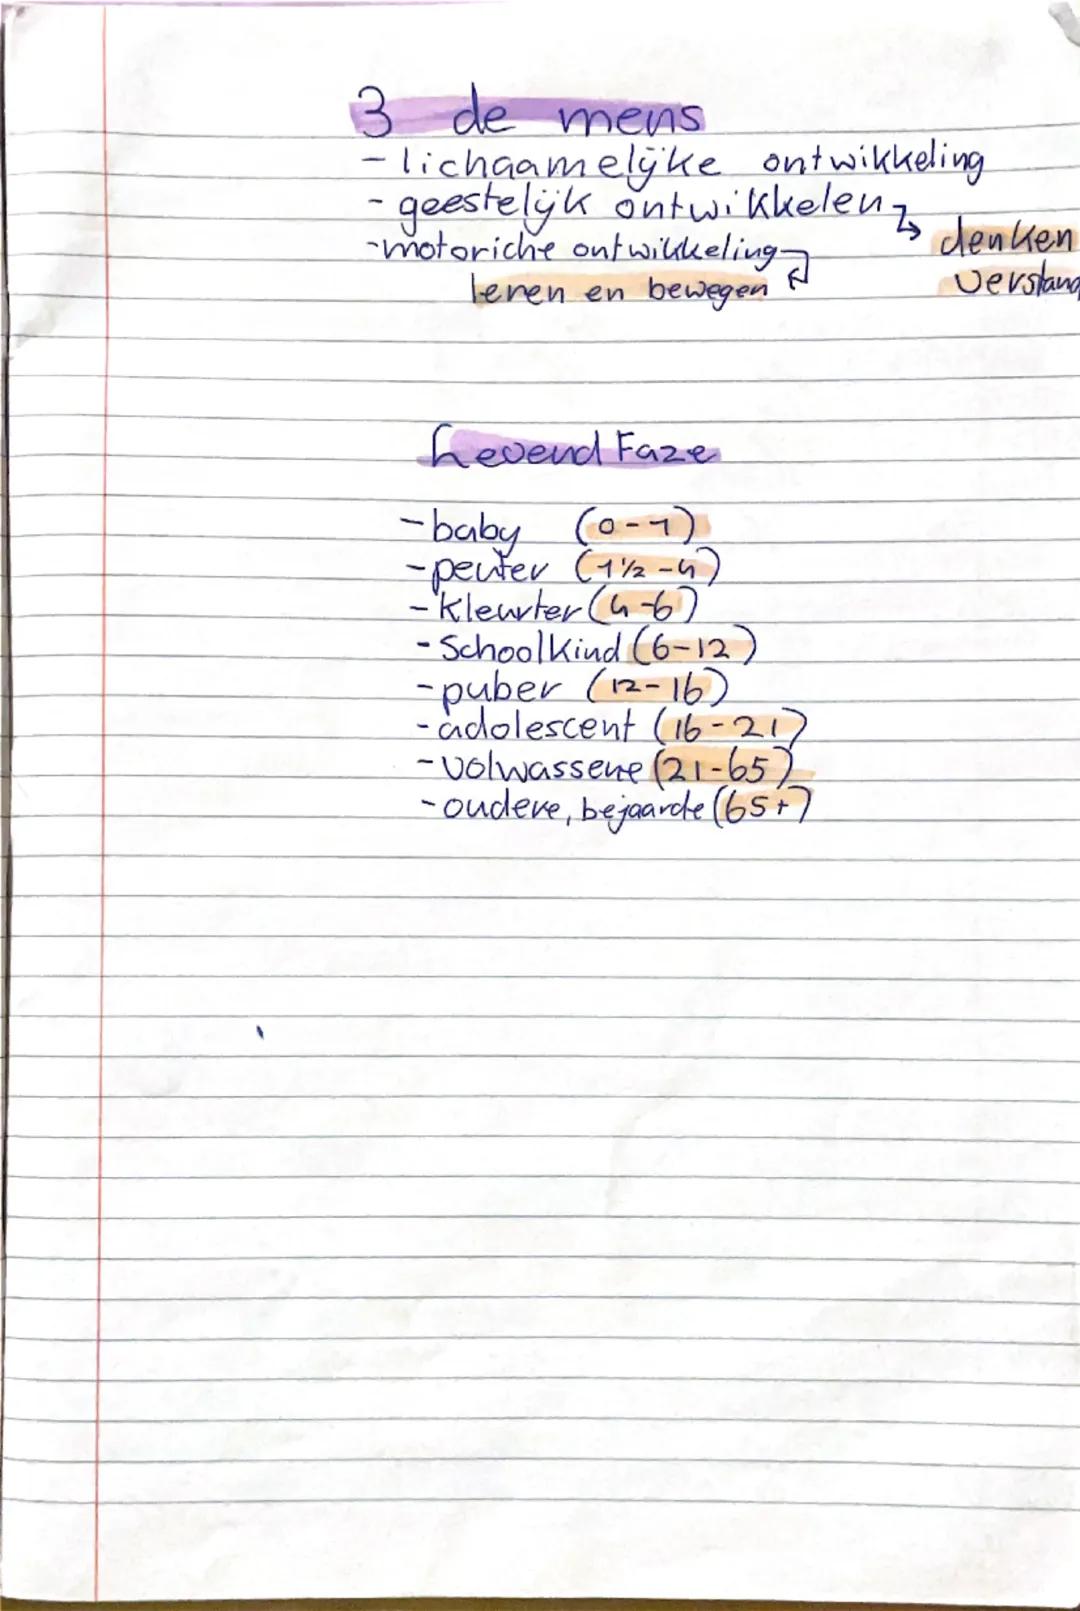 3 de mens
- lichaamelijke ontwikkeling
- geestelijk ontwikkelen
denken
verstand
- motoriche ontwikkeling
leren en bewegen
Levend Faze
- baby (0-1)
- peuter (1 1/2 - 4)
- Kleurter (4-6)
- Schoolkind (6-12)
- puber (12-16)
- adolescent (16-21)
- volwassene (21-65)
- oudere, bejaarde (65+)